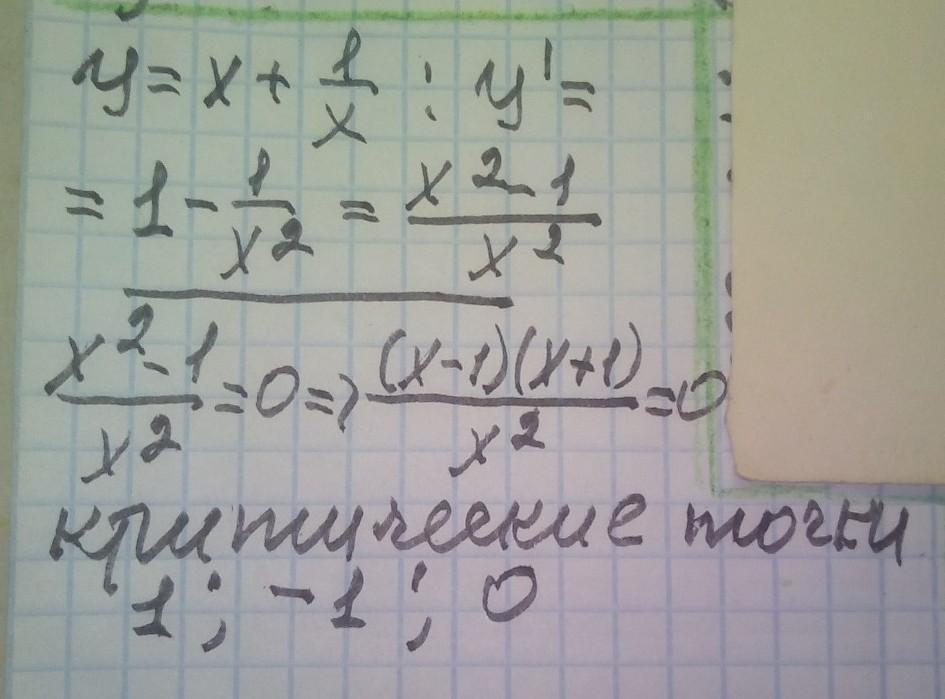 y = x + 1/x ; y' =
= 1 - 1/x² = x² - 1/x²
x² - 1/x² = 0 => (x-1)(x+1)/x² = 0
критические точки
1 ; -1 ; 0